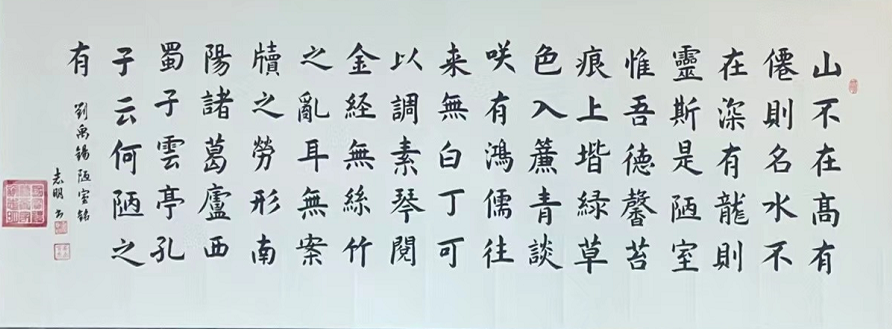 山不在高有
僊則名水不
在深有龍則
靈斯是陋室
惟吾德馨苔
痕上堦緑草
色入簾青談
咲有鴻儒往
来無白丁可
以調素琴閱
金経無絲竹
之亂耳無案
牘之勞形南
陽諸葛廬西
蜀子雲亭孔
子云何陋之
有
劉禹錫陋室銘
志明书